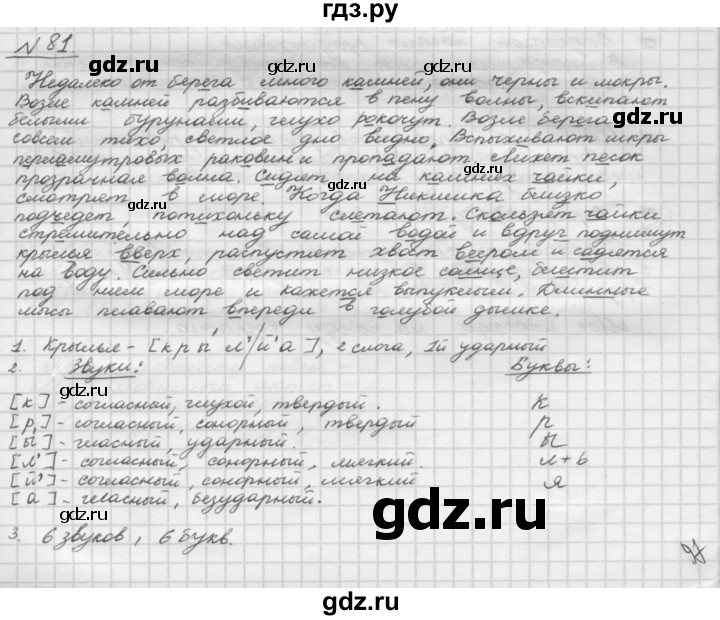 гдз.ру
№ 81.
gdz.ru gdz.ru
Недалеко от берега много камней, они черны и мокры.
Возле камней разбиваются в пену волны, вскипают
белыми бурунами, глухо рокочут. Возле берега
совсем тихо, светлое дно видно. Вспыхивают искры
перламутровых раковин и пропадают. Лижет песок
прозрачная волна. Сидят на камнях чайки,
смотрят в море. Когда Никишка близко
подъедет, потихоньку слетают. Скользят чайки
стремительно над самой водой и вдруг поднимут
крылья вверх, распустят хвост веером и садятся
на воду. Сильно светит низкое солнце, блестит
под ним море и кажется выпуклым. Длинные
мысы плавают впереди в голубой дымке.
1. Крылья - [кры́л'/й'а], 2 слога, 1й ударный
2. Звуки: Буквы:
[к] - согласный, глухой, твердый. к
[р] - согласный, сонорный, твердый р
[ы́] - гласный, ударный. ы
[л'] - согласный, сонорный, мягкий. л+ь
[й'] - согласный, сонорный, мягкий я
[а] - гласный, безударный.
3. 6 звуков, 6 букв.
gdz.ru